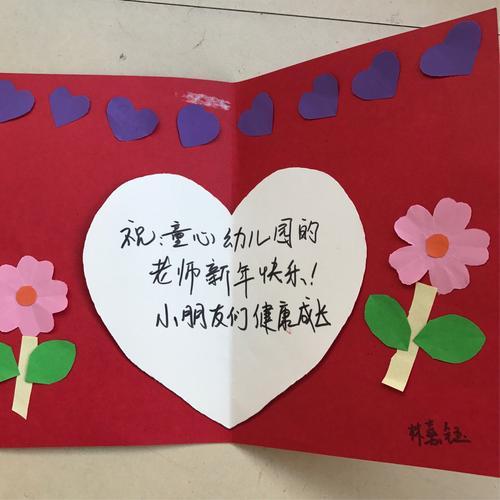 祝:童心幼儿园的
老师新年快乐!
小朋友们健康成长
林嘉钰